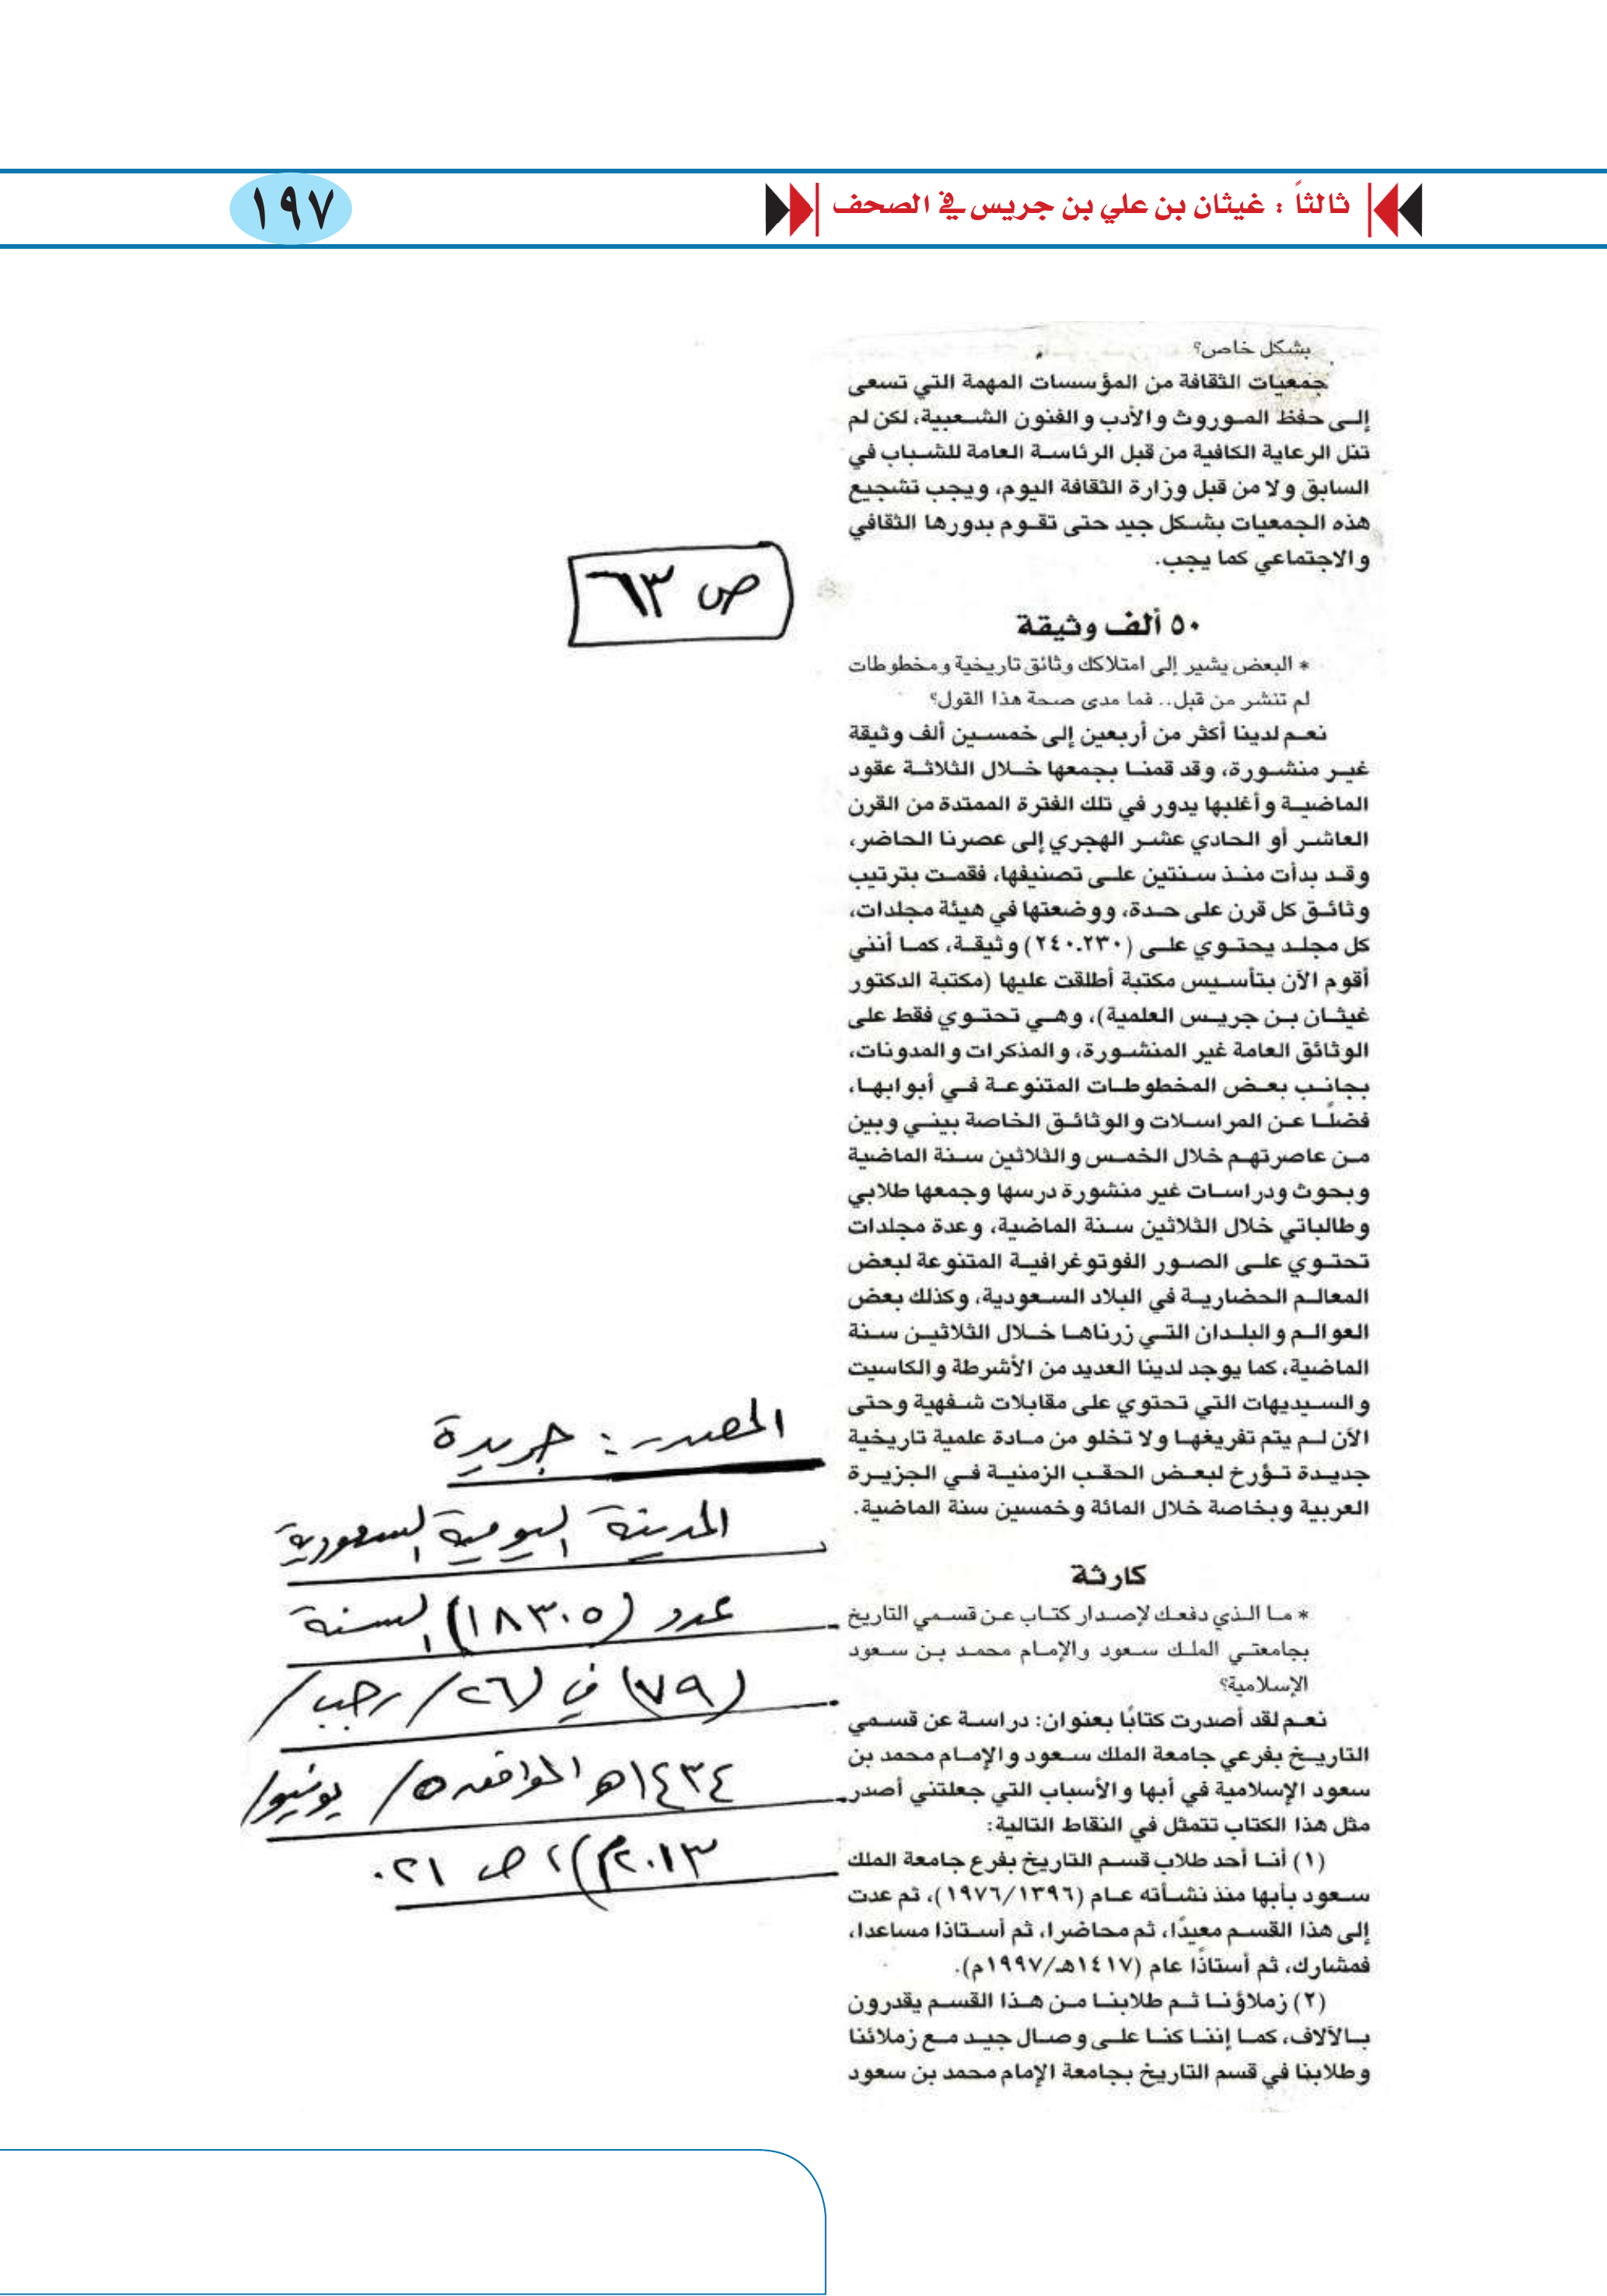 ثالثاً : غيثان بن علي بن جريس في الصحف
١٩٧
بشكل خاص؟
جمعيات الثقافة من المؤسسات المهمة التي تسعى
إلى حفظ الموروث والأدب والفنون الشعبية، لكن لم
تنل الرعاية الكافية من قبل الرئاسة العامة للشباب في
السابق ولا من قبل وزارة الثقافة اليوم، ويجب تشجيع
هذه الجمعيات بشكل جيد حتى تقوم بدورها الثقافي
والاجتماعي كما يجب.
٥٠ ألف وثيقة
* البعض يشير إلى امتلاكك وثائق تاريخية ومخطوطات
لم تنشر من قبل.. فما مدى صحة هذا القول؟
نعم لدينا أكثر من أربعين إلى خمسين ألف وثيقة
غير منشورة، وقد قمنا بجمعها خلال الثلاثة عقود
الماضية وأغلبها يدور في تلك الفترة الممتدة من القرن
العاشر أو الحادي عشر الهجري إلى عصرنا الحاضر،
وقد بدأت منذ سنتين على تصنيفها، فقمت بترتيب
وثائق كل قرن على حدة، ووضعتها في هيئة مجلدات،
كل مجلد يحتوي على (٢٤٠.٢٣٠) وثيقة، كما أنني
أقوم الآن بتأسيس مكتبة أطلقت عليها (مكتبة الدكتور
غيثان بن جريس العلمية)، وهي تحتوي فقط على
الوثائق العامة غير المنشورة، والمذكرات والمدونات،
بجانب بعض المخطوطات المتنوعة في أبوابها،
فضلًا عن المراسلات والوثائق الخاصة بيني وبين
من عاصرتهم خلال الخمس والثلاثين سنة الماضية
وبحوث ودراسات غير منشورة درسها وجمعها طلابي
وطالباتي خلال الثلاثين سنة الماضية، وعدة مجلدات
تحتوي على الصور الفوتوغرافية المتنوعة لبعض
المعالم الحضارية في البلاد السعودية، وكذلك بعض
العوالم والبلدان التي زرناها خلال الثلاثين سنة
الماضية، كما يوجد لدينا العديد من الأشرطة والكاسيت
والسيديهات التي تحتوي على مقابلات شفهية وحتى
الآن لم يتم تفريغها ولا تخلو من مادة علمية تاريخية
جديدة تؤرخ لبعض الحقب الزمنية في الجزيرة
العربية وبخاصة خلال المائة وخمسين سنة الماضية.
كارثة
* ما الذي دفعك لإصدار كتاب عن قسمي التاريخ
بجامعتي الملك سعود والإمام محمد بن سعود
الإسلامية؟
نعم لقد أصدرت كتابًا بعنوان: دراسة عن قسمي
التاريخ بفرعي جامعة الملك سعود والإمام محمد بن
سعود الإسلامية في أبها والأسباب التي جعلتني أصدر
مثل هذا الكتاب تتمثل في النقاط التالية:
(١) أنا أحد طلاب قسم التاريخ بفرع جامعة الملك
سعود بأبها منذ نشأته عام (١٩٧٦/١٣٩٦)، ثم عدت
إلى هذا القسم معيدًا، ثم محاضرا، ثم أستاذا مساعدا،
فمشارك، ثم أستاذًا عام (١٤١٧هـ/١٩٩٧م).
(٢) زملاؤنا ثم طلابنا من هذا القسم يقدرون
بالآلاف، كما إننا كنا على وصال جيد مع زملائنا
وطلابنا في قسم التاريخ بجامعة الإمام محمد بن سعود
ص ٦٣
المصدر : جريدة
المدينة اليومية السعودية
عدد (١٨٣٠٥) السنة
(٧٩) في (٢٦/ رجب/
١٤٣٤هـ الموافق ٥/ يونيو/
٢٠١٣م)، ص ٢١.